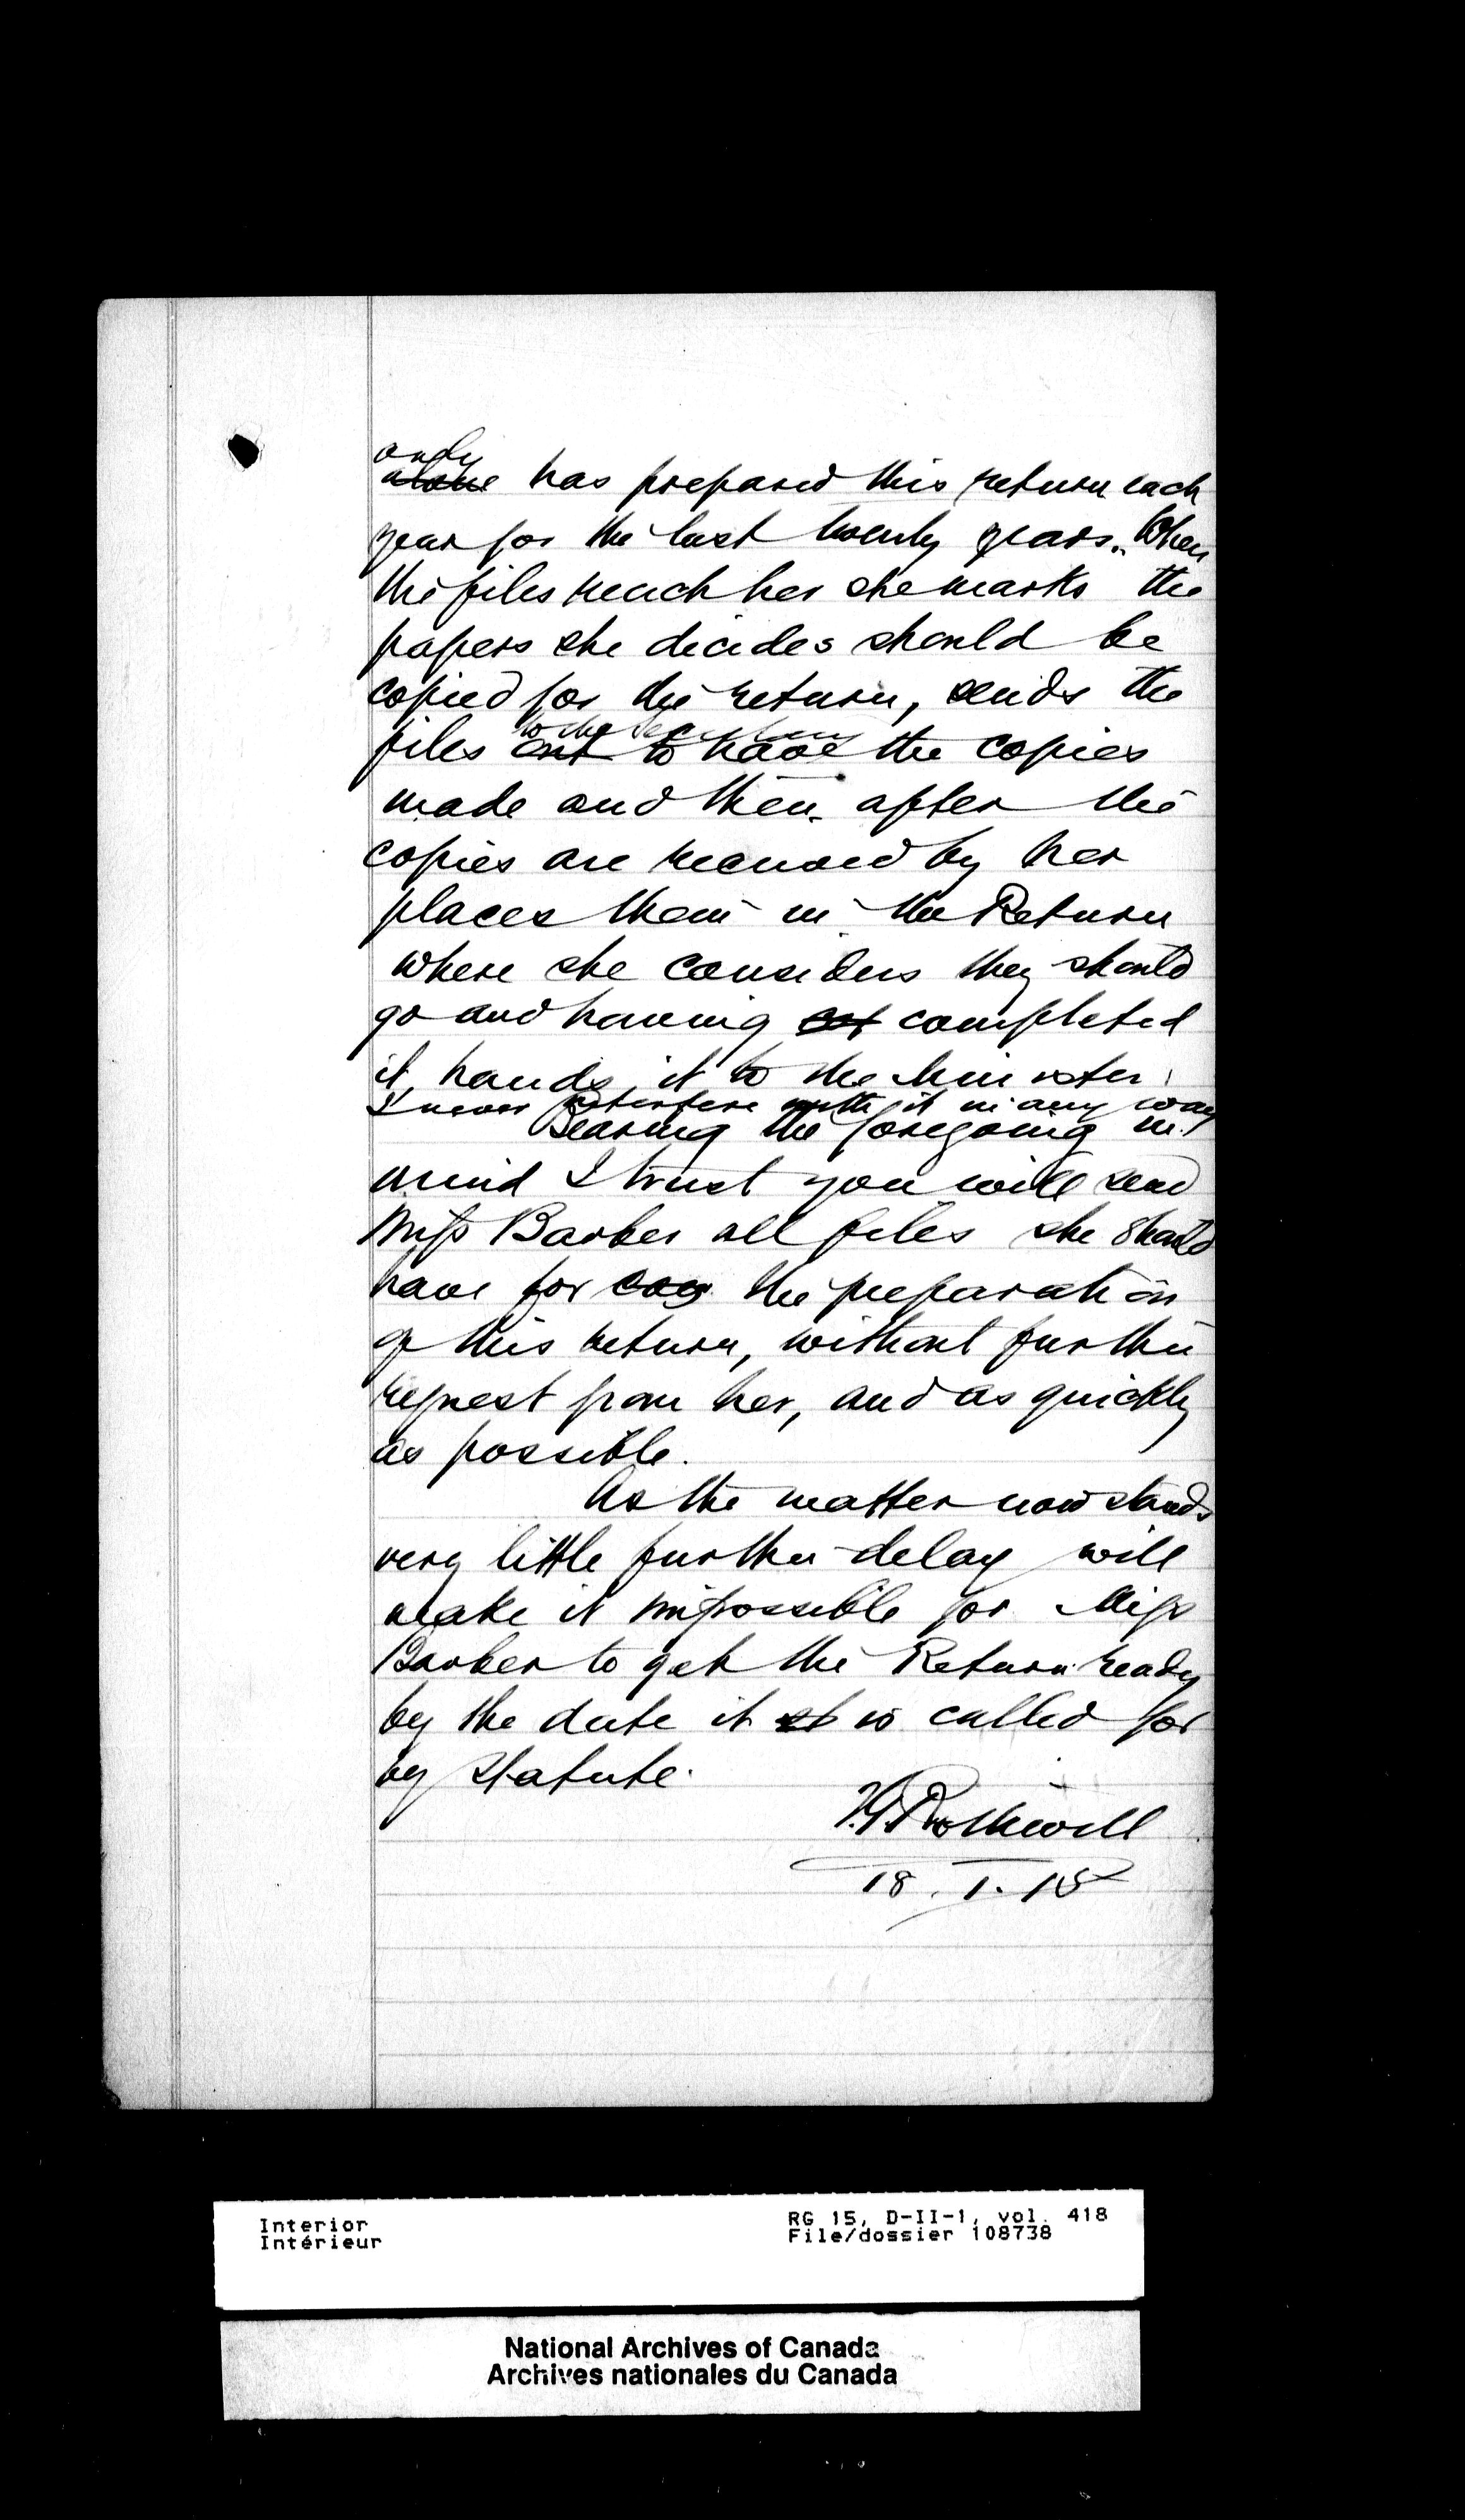 only
alone has prepared this return each
year for the last twenty years. When
the files reach her she marks the
papers she decides should be
copied for the return, sends the
to the
files out to have the copies
made and then after the
copies are received by her
places them in the Return
where she considers they should
go and having completed
it, hands it to the Minister.
I never interfere with it in any way
Bearing the foregoing in
mind I trust you will send
Miss Barber all files she should
have for the preparation
of this return, without further
request from her, and as quickly
as possible.
As the matter now stands
very little further delay will
make it impossible for Miss
Barber to get the Return ready
by the date it is called for
by statute.
Rothwell
18.1.18
Interior
Intérieur
RG 15, D-II-1, vol. 418
File/dossier 108738
National Archives of Canada
Archives nationales du Canada